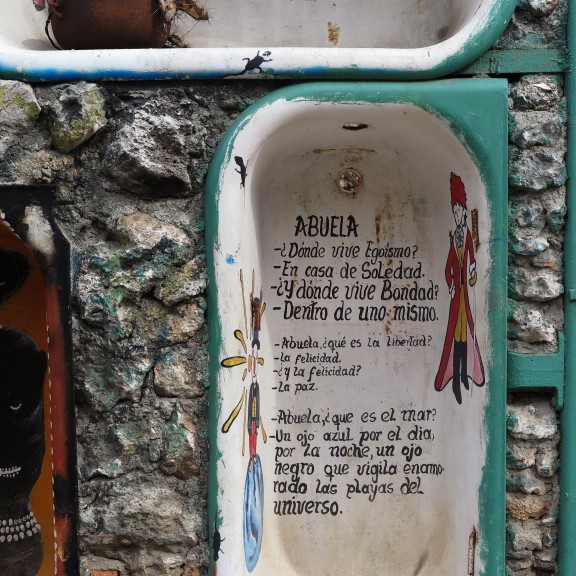 ABUELA
-¿Dónde vive Egoísmo?
-En casa de Soledad.
-¿Y dónde vive Bondad?
-Dentro de uno mismo.
-Abuela,¿qué es la libertad?
-La felicidad.
-¿Y la felicidad?
-La paz.
-Abuela,¿que es el mar?
-Un ojo azul por el día,
por la noche, un ojo
negro que vigila enamo-
rado las playas del
universo.